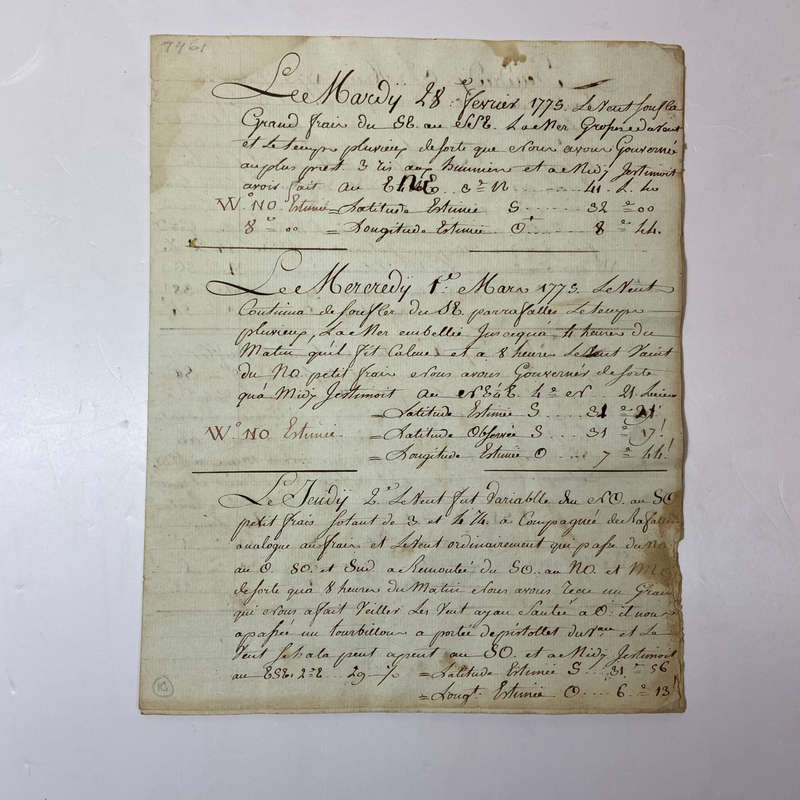 7461
Le Mardÿ 28.e fevrier 1773. Le Vent soufla
Grand frain du SE. au ESE. La Mer Grosse
et Le temps pluvieux de sorte que Nous avons Gouverné
au plus prest 3 ris aux huniers et a Midy Jestimoit
avoir fait au 3.º N 41. L.
W.º NO Estimée = Latitude Estimée S 32 º 00
8 º 00 = Longitude Estimée O. 8 º 44.
Le Mercredÿ 1.er Mars 1773. Le Vent
Continua de soufler du SE par rafalles Le temps
pluvieux, La Mer embellie Jusequá 4 heures du
Matin quil fit Calme et a 8 heures Le Vent Vaint
du NO petit frain Nous avons Gouvernés de sorte
quá Midy Jestimoit au NE¼E 4.º N 21 Lieues
= Latitude Estimée S 31 º 21'
W.º NO Estimée. = Latitude Observée S 31 º 17'
= Longitude Estimée O 7 º 44'
Le Jeudÿ 2.e Le Vent fut Variable du NO. au SO
petit frais sotant de 3 et 4 ¼. á Compagnée de Rafalles
analogue au frain et Le Vent ordinairement qui passe du NO
au O. SO. et Sud. a Remontée du SO au NO. et
de sorte quá 8 heures du Matin Nous avons Recu un Grain
qui Nous a fait Veiller Les Vent ayan Sautée a O. il nous
a passée un tourbillon a portée de pistollet du Vau et Le
Vent peut apeut au SO. et a Midy Jestimoit
au ESE. 2.º E 29 = Latitude Estimée S 31 º 56
= Longt. Estimée O 6 º 13'